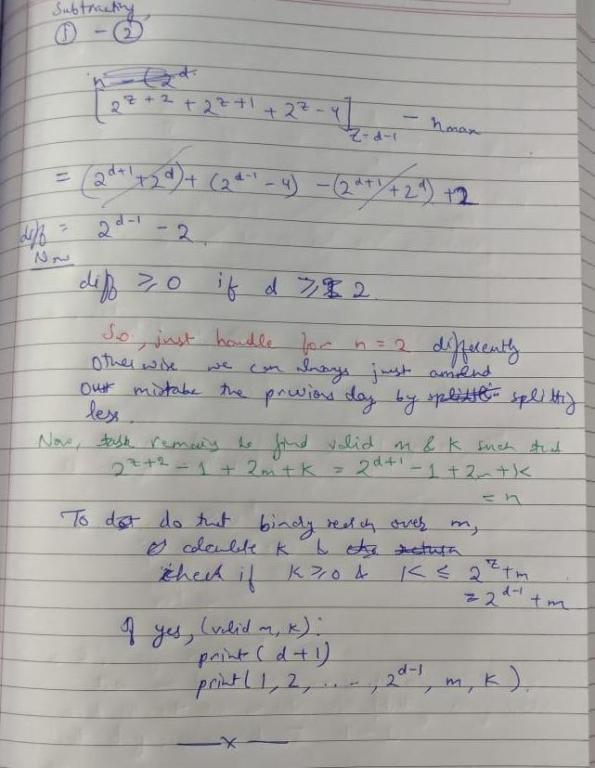 Subtracting,
① - ②
[2^{z+2} + 2^{z+1} + 2^z - 4]_{z=d-1} - n_{max}
= (2^{d+1} + 2^d) + (2^{d-1} - 4) - (2^{d+1} + 2^d) + 2
diff = 2^{d-1} - 2.
Now
diff ≥ 0 if d ≥ 2.
So, just handle for n = 2 differently
Otherwise we can always just amend
our mistake the previous day by splitting
less.
Now, task remains to find valid m & k such that
2^{z+2} - 1 + 2m + k = 2^{d+1} - 1 + 2m + k
= n
To do that binary search over m,
calculate k &
check if k ≥ 0 & k ≤ 2^z + m
= 2^{d-1} + m
If yes, (valid m, k):
print (d+1)
print (1, 2, ...., 2^{d-1}, m, k).
—x—